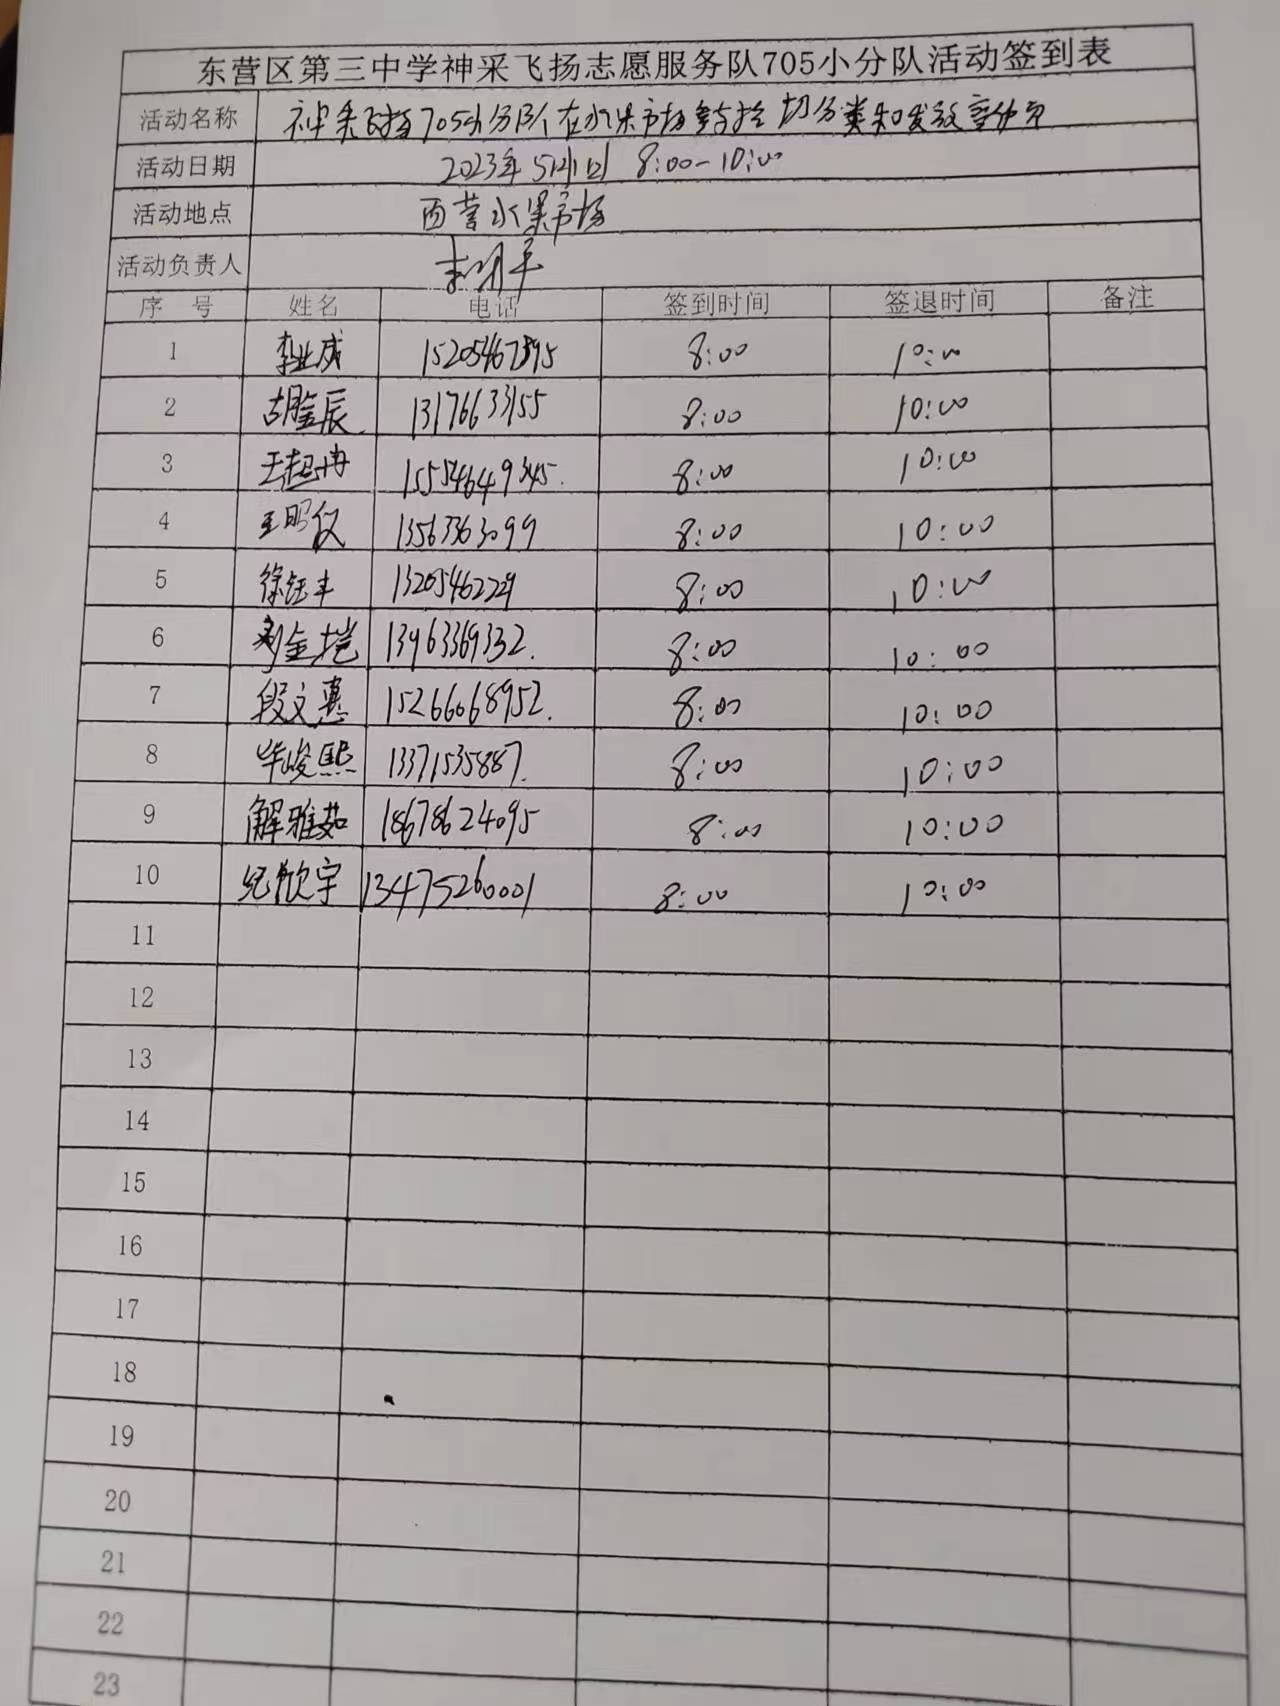 东营区第三中学神采飞扬志愿服务队705小分队活动签到表
活动名称 神采飞扬705小分队在水果市场 垃圾分类和发放宣传页
活动日期 2023年5月 8:00-10:00
活动地点 西营水果市场
活动负责人
序号 姓名 电话 签到时间 签退时间 备注
1 李业成 15205467895 8:00 10:00
2 胡金辰 13176633155 8:00 10:00
3 王超冉 15554649345 8:00 10:00
4 王明仪 13563363099 8:00 10:00
5 徐钰丰 13205462229 8:00 10:00
6 刘金铠 13963369332 8:00 10:00
7 段文惠 15266068952 8:00 10:00
8 毕峻熙 13371535887 8:00 10:00
9 解雅茹 18678624095 8:00 10:00
10 纪歆宇 13475260001 8:00 10:00
11
12
13
14
15
16
17
18
19
20
21
22
23